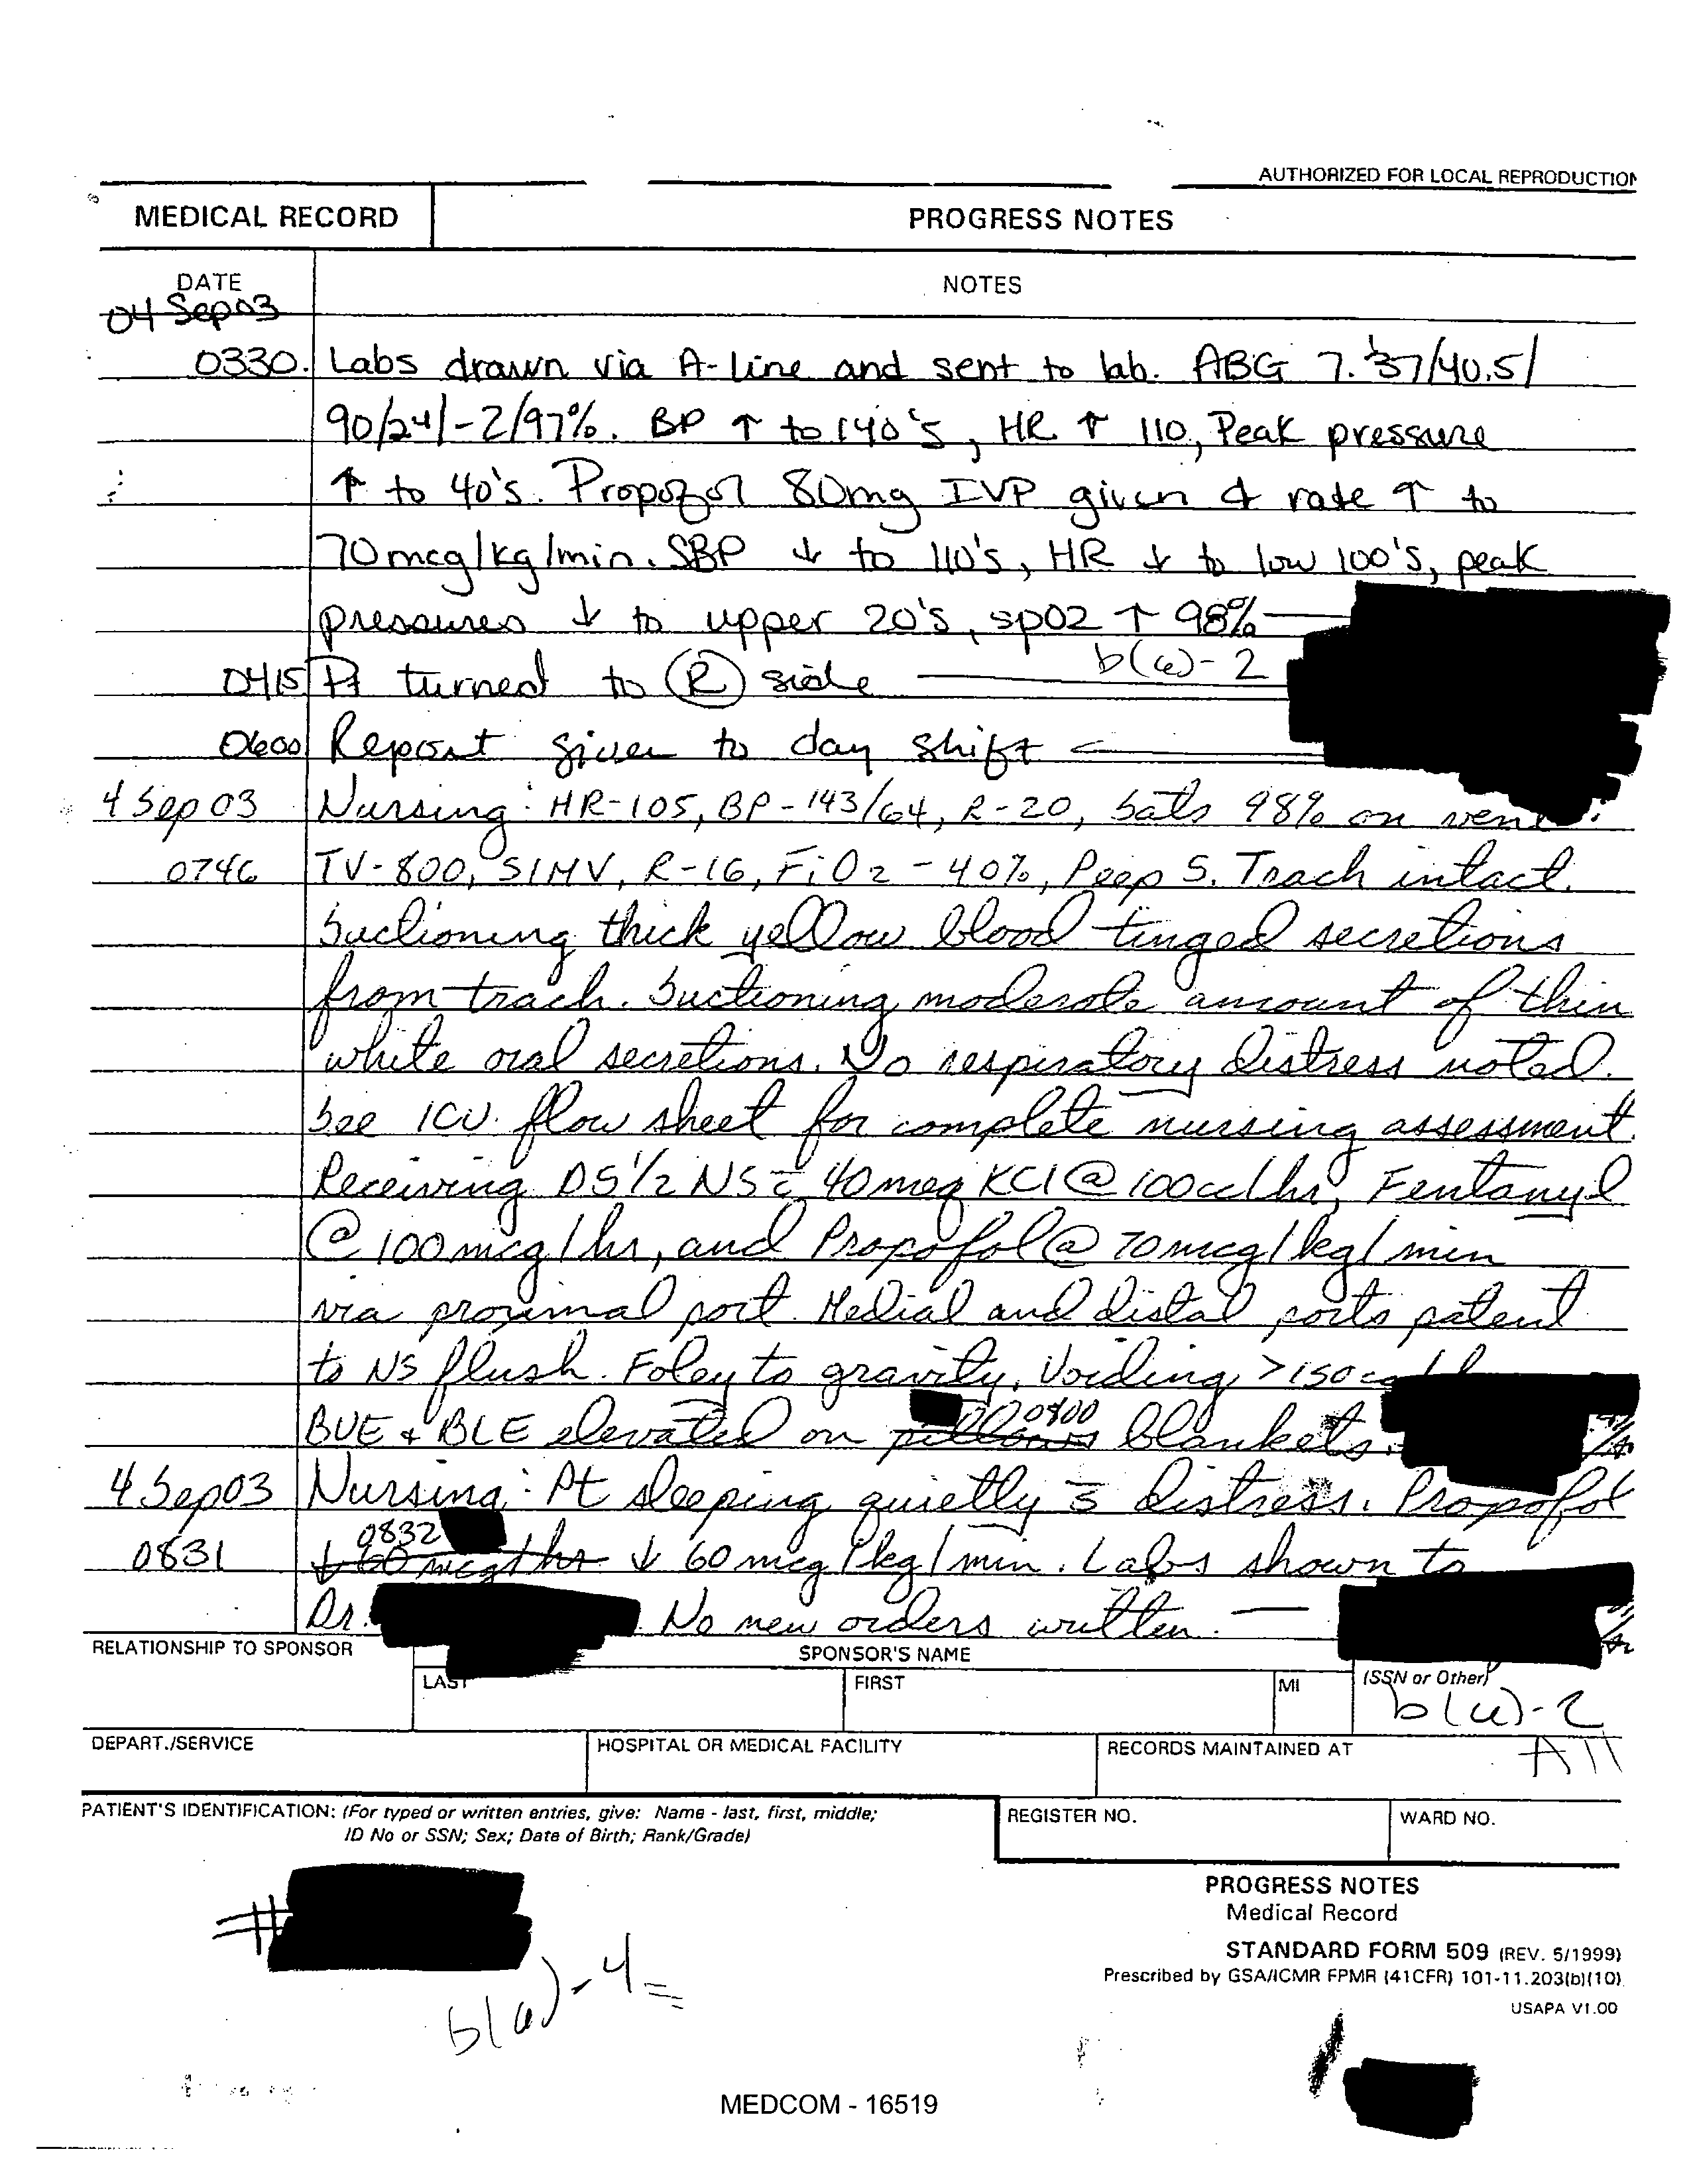 AUTHORIZED FOR LOCAL REPRODUCTION
MEDICAL RECORD PROGRESS NOTES
DATE NOTES
04 Sep 03
0330. Labs drawn via A-line and sent to lab. ABG 7.37/40.5/
90/24/-2/97%. BP ↑ to 140's, HR ↑ 110, Peak pressure
↑ to 40's. Propofol 80mg IVP given & rate ↑ to
70mcg/kg/min. SBP ↓ to 110's, HR ↓ to low 100's, peak
pressures ↓ to upper 20's, spO2 ↑ 98%
b(6)-2
0415 Pt turned to (R) side
0600 Report given to day shift
4 Sep 03 Nursing: HR-105, BP-143/64, R-20, Sats 98% on vent.
0746 TV-800, SIMV, R-16, FiO2-40%, Peep 5. Trach intact.
Suctioning thick yellow blood tinged secretions
from trach. Suctioning moderate amount of thin
white oral secretions. No respiratory distress noted.
See ICU flow sheet for complete nursing assessment.
Receiving D5 1/2 NS c̄ 40 meq KCl @ 100cc/hr, Fentanyl
@ 100 mcg/hr, and Propofol @ 70 mcg/kg/min
via proximal port. Medial and distal ports patent
to NS flush. Foley to gravity. Voiding >150cc
0800
BUE & BLE elevated on pillows blankets.
4 Sep 03 Nursing: Pt sleeping quietly s̄ distress. Propofol
0832
0831 ↓ 60 mcg/hr ↓ 60 mcg/kg/min. Labs shown to
Dr. No new orders written.
RELATIONSHIP TO SPONSOR SPONSOR'S NAME
LAST FIRST MI (SSN or Other)
b(6)-2
All
DEPART./SERVICE HOSPITAL OR MEDICAL FACILITY RECORDS MAINTAINED AT
PATIENT'S IDENTIFICATION: (For typed or written entries, give: Name - last, first, middle;
ID No or SSN; Sex; Date of Birth; Rank/Grade)
REGISTER NO. WARD NO.
#
b(6)-4
PROGRESS NOTES
Medical Record
STANDARD FORM 509 (REV. 5/1999)
Prescribed by GSA/ICMR FPMR (41CFR) 101-11.203(b)(10)
USAPA V1.00
MEDCOM - 16519